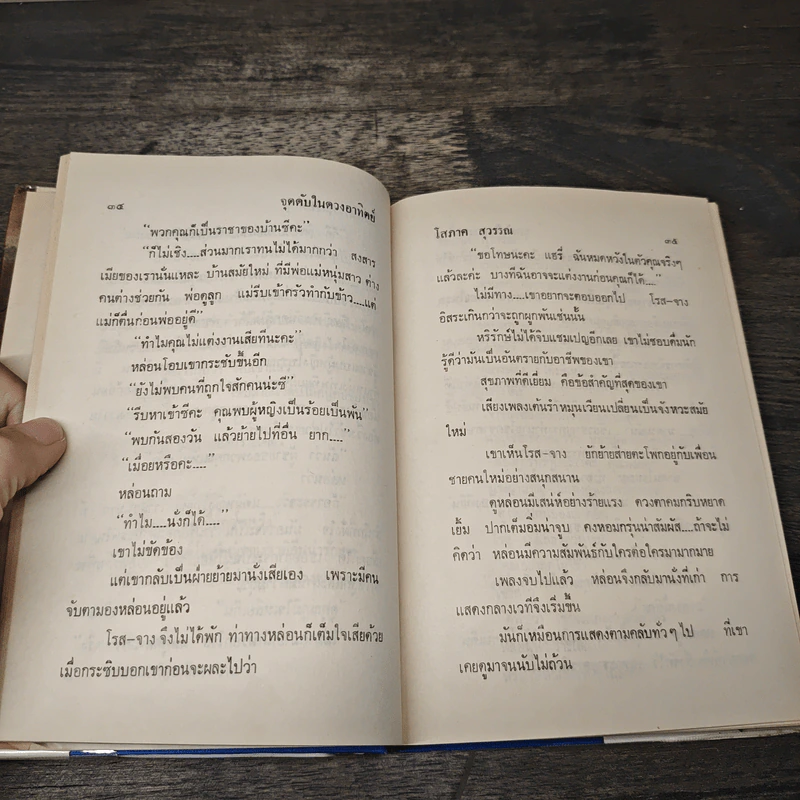 ๓๔ จุดดับในดวงอาทิตย์
“พวกคุณก็เป็นราชาของบ้านซีคะ”
“ก็ไม่เชิง....ส่วนมากเราทนไม่ได้มากกว่า สงสาร
เมียของเรานั่นแหละ บ้านสมัยใหม่ ที่มีพ่อแม่หนุ่มสาว ต่าง
คนต่างช่วยกัน พ่อดูลูก แม่รีบเข้าครัวทำกับข้าว....แต่
แม่ก็ตื่นก่อนพ่ออยู่ดี”
“ทำไมคุณไม่แต่งงานเสียทีนะคะ”
หล่อนโอบเขากระชับขึ้นอีก
“ยังไม่พบคนที่ถูกใจสักคนน่ะซี”
“รีบหาเข้าซีคะ คุณพบผู้หญิงเป็นร้อยเป็นพัน”
“พบกันสองวัน แล้วย้ายไปที่อื่น ยาก....”
“เมื่อยหรือคะ....”
หล่อนถาม
“ทำไม....นั่งก็ได้....”
เขาไม่ขัดข้อง
แต่เขากลับเป็นฝ่ายย้ายมานั่งเสียเอง เพราะมีคน
จับตามองหล่อนอยู่แล้ว
โรส-จาง จึงไม่ได้พัก ท่าทางหล่อนก็เต็มใจเสียด้วย
เมื่อกระซิบบอกเขาก่อนจะผละไปว่า
โสภาค สุวรรณ ๓๕
“ขอโทษนะคะ แฮรี่ ฉันหมดหวังในตัวคุณจริงๆ
แล้วละค่ะ บางทีฉันอาจจะแต่งงานก่อนคุณก็ได้....”
ไม่มีทาง....เขาอยากจะตอบออกไป โรส-จาง
อิสระเกินกว่าจะถูกผูกพันเช่นนั้น
หริรักษ์ไม่ได้จิบแชมเปญอีกเลย เขาไม่ชอบดื่มนัก
รู้ดีว่ามันเป็นอันตรายกับอาชีพของเขา
สุขภาพที่ดีเยี่ยม คือข้อสำคัญที่สุดของเขา
เสียงเพลงเต้นรำหมุนเวียนเปลี่ยนเป็นจังหวะสมัย
ใหม่
เขาเห็นโรส-จาง ยักย้ายส่ายตะโพกอยู่กับเพื่อน
ชายคนใหม่อย่างสนุกสนาน
ดูหล่อนมีเสน่ห์อย่างร้ายแรง ดวงตาคมกริบหยาด
เยิ้ม ปากเต็มอิ่มน่าจูบ คงหอมกรุ่นน่าสัมผัส....ถ้าจะไม่
คิดว่า หล่อนมีความสัมพันธ์กับใครต่อใครมามากมาย
เพลงจบไปแล้ว หล่อนจึงกลับมานั่งที่เก่า การ
แสดงกลางเวทีจึงเริ่มขึ้น
มันก็เหมือนการแสดงตามคลับทั่วๆไป ที่เขา
เคยดูมาจนนับไม่ถ้วน